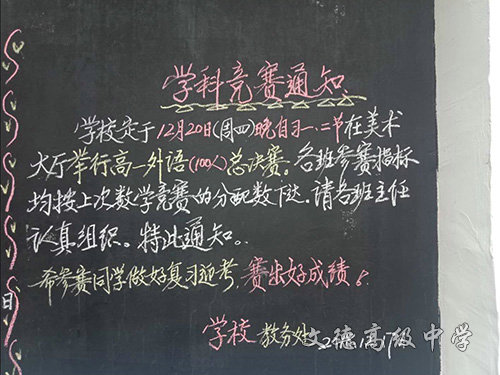 学科竞赛通知
学校定于12月20日(周四)晚自习一、二节在美术
大厅举行高一外语(100人)总决赛。各班参赛指标
均按上次数学竞赛的分配数下达。请各班主任
认真组织。特此通知。
希参赛同学做好复习迎考,赛出好成绩!
日
学校 教务处
文德高级中学